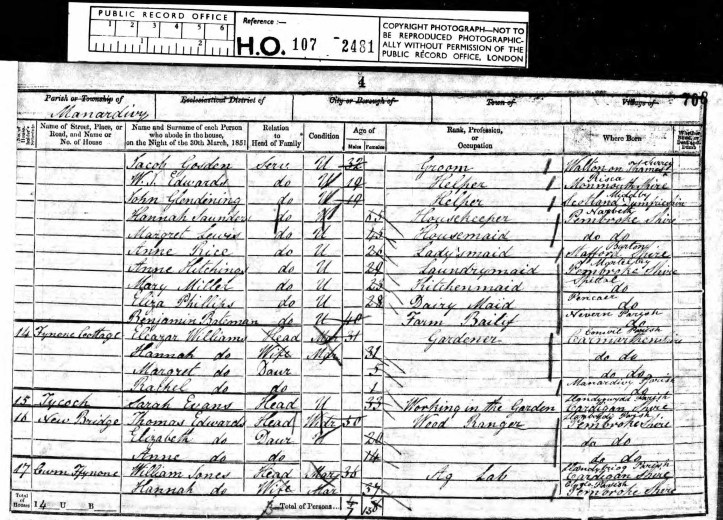 PUBLIC RECORD OFFICE
1 2 3 4 5 6
1 2
Reference :—
H.O. 107 2481
COPYRIGHT PHOTOGRAPH—NOT TO
BE REPRODUCED PHOTOGRAPHIC-
ALLY WITHOUT PERMISSION OF THE
PUBLIC RECORD OFFICE, LONDON
4
Parish or Township of Ecclesiastical District of City or Borough of Town of Village of 708
Manardivy
Name of Street, Place, or Road, and Name or No. of House
Name and Surname of each Person who abode in the house, on the Night of the 30th March, 1851
Relation to Head of Family
Condition
Age of Males Females
Rank, Profession, or Occupation
Where Born
Jacob Gosden Serv U 32 Groom Walton on Thames Surrey
W.J. Edwards do U 19 Helper Risca Monmouth Shire
John Glendening do U 19 Helper Scotland
Hannah Saunders do W 65 Housekeeper Narbeth Pembroke Shire
Margret Lewis do U Housemaid do do
Anne Rice do U Lady's maid Burton Stafford Shire
Anne Hitchings do U 29 Laundrymaid Pembroke Shire
Mary Miller do U Kitchenmaid Spittal do
Eliza Phillips do U 28 Dairy Maid Pencaer do
Benjamin Bateman do U 40 Farm Bailif Nevern Parish do
14 Fynone Cottage Eleazar Williams Head Mar 31 Gardener Parish Carmarthenshire
Hannah do Wife Mar 31 do do
Margret do Daur 5 do do
Rachel do do 1 Manardivy Parish do
15 Tycoch Sarah Evans Head U 33 Working in the Garden Parish Cardigan Shire
16 New Bridge Thomas Edwards Head Widr 50 Wood Ranger Parish Pembroke Shire
Elizabeth do Daur 20 do do
Anne do do 14 do do
17 Cwm Fynone William Jones Head Mar 36 Ag Lab Parish Cardigan Shire
Hannah do Wife Mar 37 Parish Pembroke Shire
Total of Houses 14 U B Total of Persons...